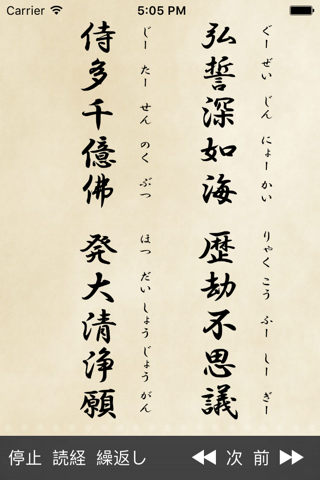 Carrier 5:05 PM
ぐー ぜい じん にょー かい りゃく こう ふー しー ぎー
弘誓深如海 歴劫不思議
じー たー せん のく ぶつ ほつ だい しょう じょう がん
侍多千億佛 発大清浄願
停止 読経 繰返し 次 前